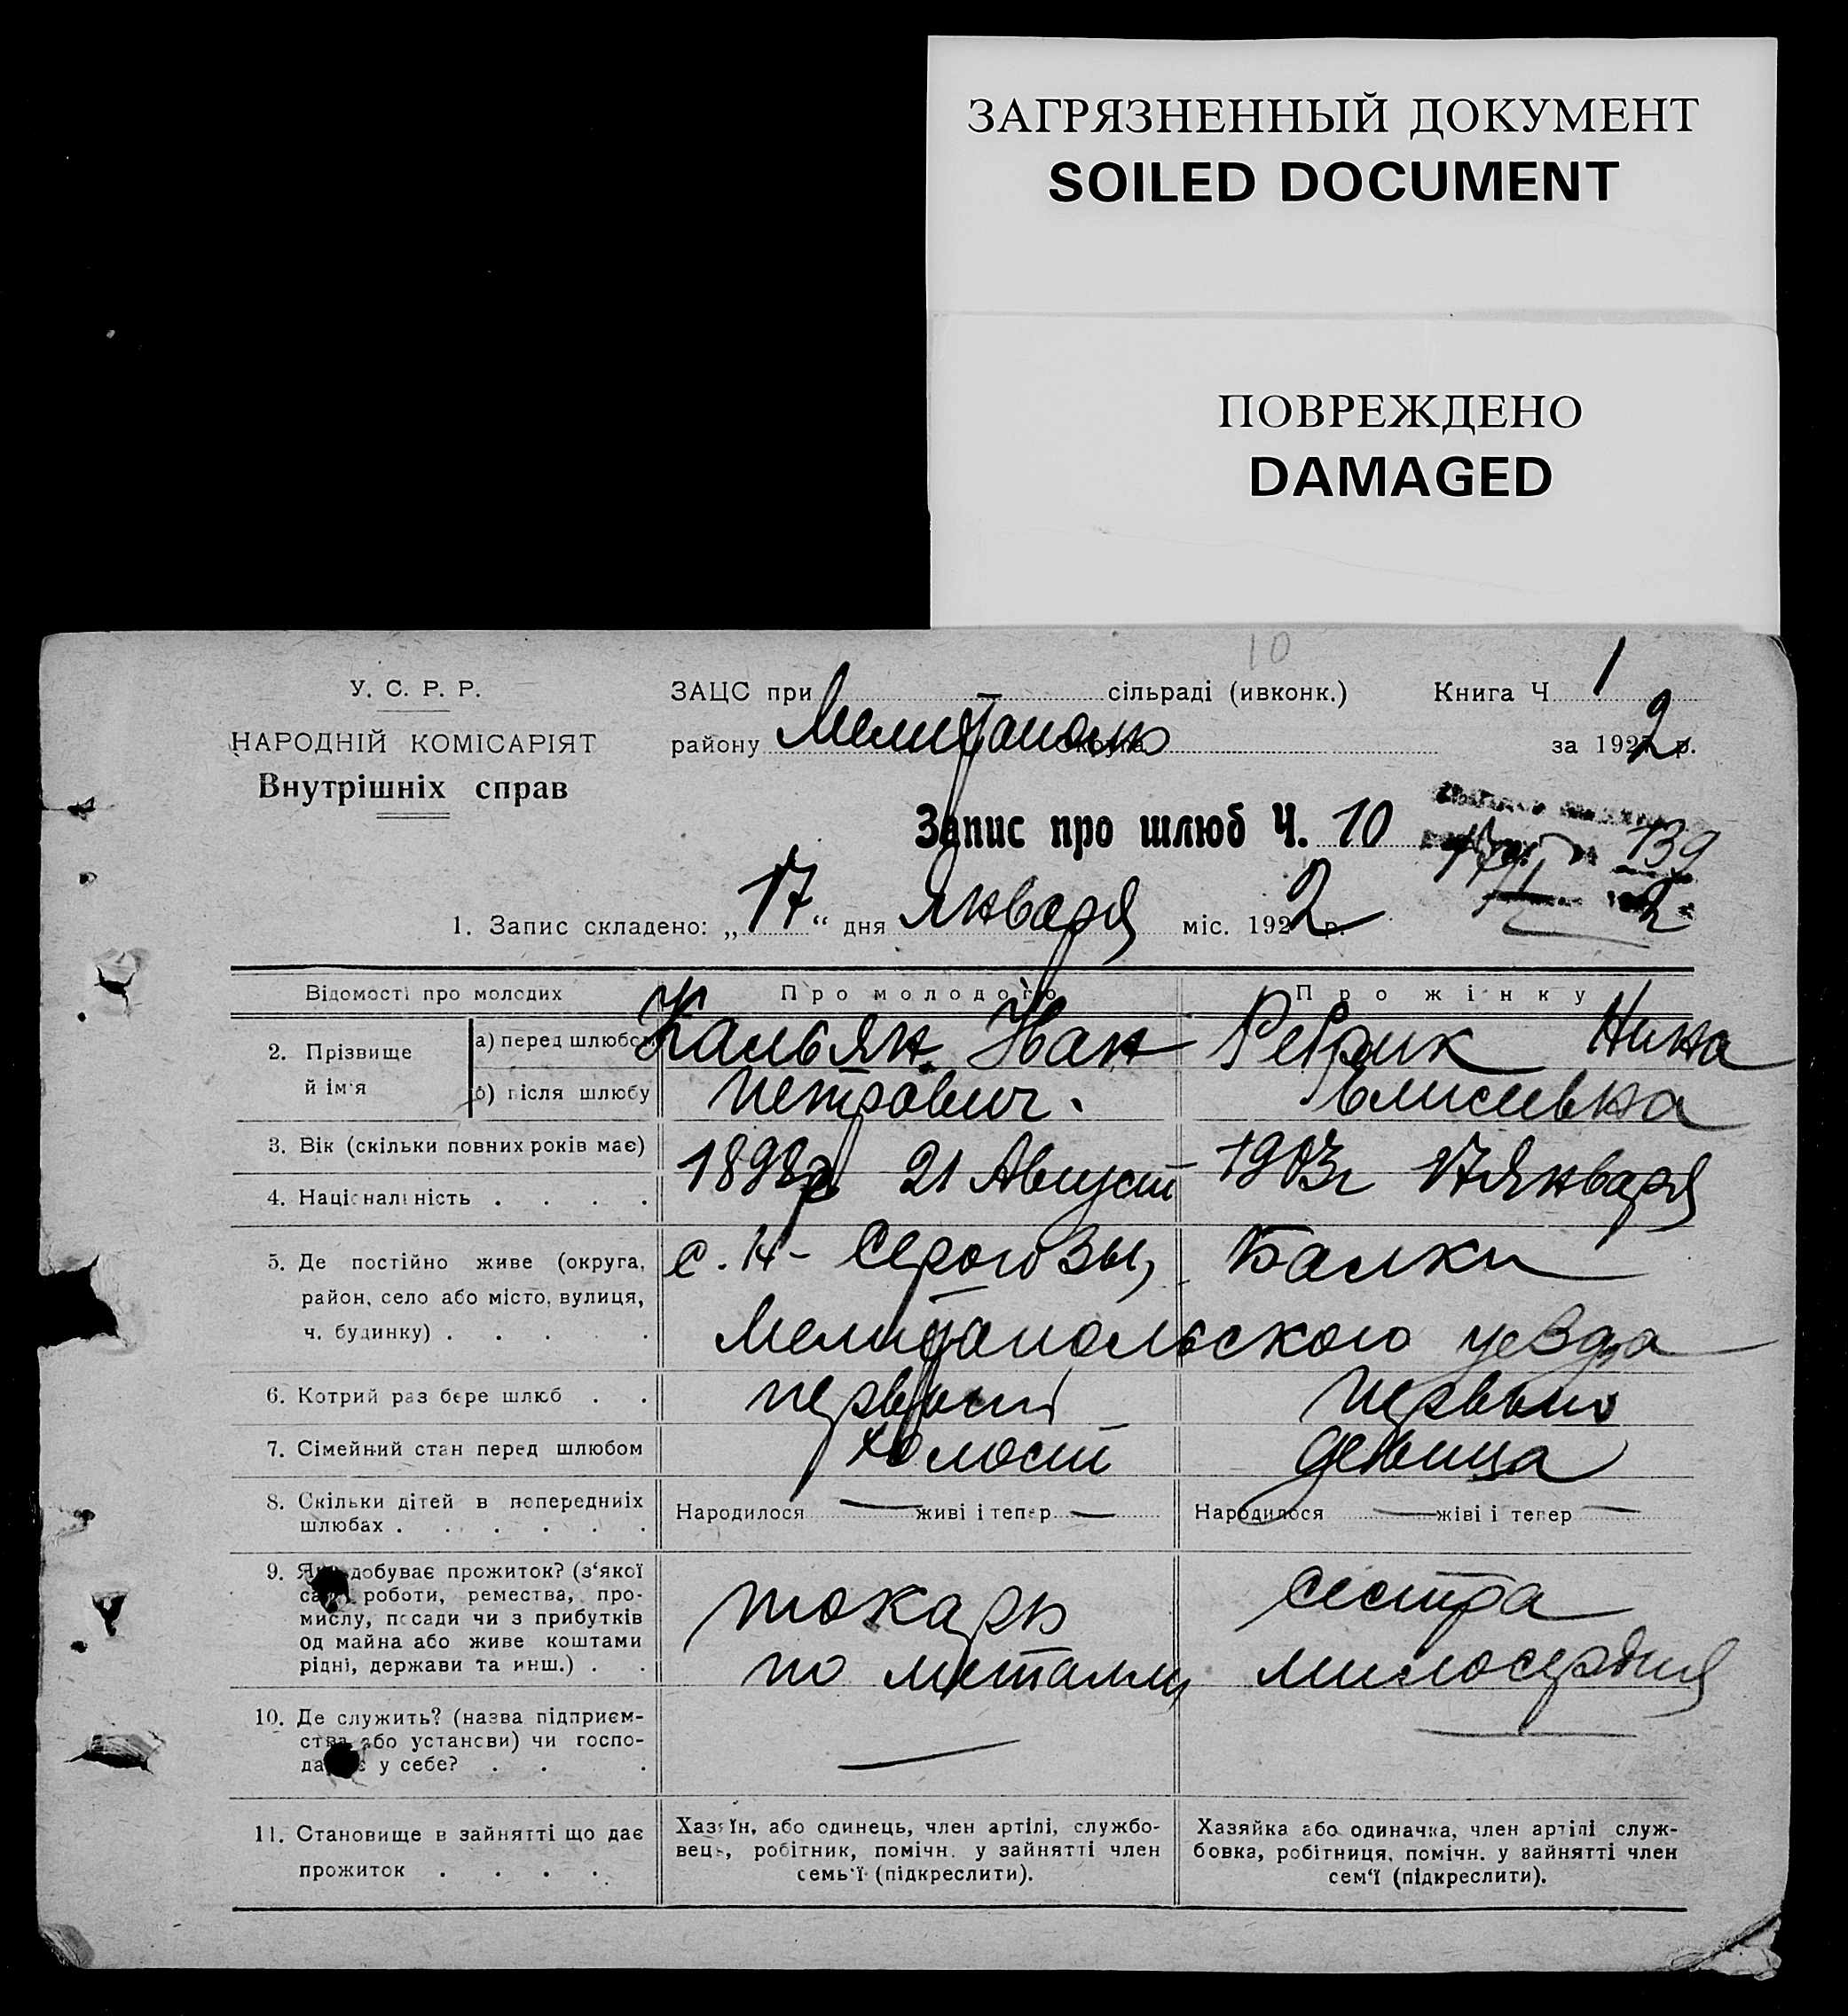 ЗАГРЯЗНЕННЫЙ ДОКУМЕНТ
SOILED DOCUMENT
ПОВРЕЖДЕНО
DAMAGED
10
У. С. Р. Р.
НАРОДНІЙ КОМІСАРІЯТ
Внутрішніх справ
ЗАЦС при — сільраді (ивконк.) Книга Ч 1
району Мелитополь за 1922 р.
Запис про шлюб Ч. 10
139
1. Запис складено: „17“ дня Января міс. 1922 р.
Відомості про молодих Про молодого Про жінку
2. Прізвище й ім'я а) перед шлюбом Кальян Иван Ребрик Нина
б) після шлюбу Петрович. Елисеевна
3. Вік (скільки повних років має)
1898г 21 Август 1903г 17 Января
4. Національність . . . .
5. Де постійно живе (округа, с. Н- Серогозы, Балки
район, село або місто, вулиця,
ч. будинку) . . . . . Мелитопольского уезда
6. Котрий раз бере шлюб . . первый первый
7. Сімейний стан перед шлюбом холост девица
8. Скільки дітей в попередніх Народилося — живі і тепер — Народилося — жіві і тепер —
шлюбах . . . . . .
9. Як добуває прожиток? (з'якої
саме роботи, ремества, про- токарь сестра
мислу, посади чи з прибутків
од майна або живе коштами
рідні, держави та инш.) . . по металлу милосердия
10. Де служить? (назва підприєм-
ства або установи) чи госпо- — —
дарює у себе? . . .
11. Становище в зайнятті що дає Хазяїн, або одинець, член артілі, службо- Хазяйка або одиначка, член артілі служ-
вець, робітник, помічн. у зайнятті член бовка, робітниця, помічн. у зайнятті член
прожиток . . . . семь'ї (підкреслити). сем'ї (підкреслити).